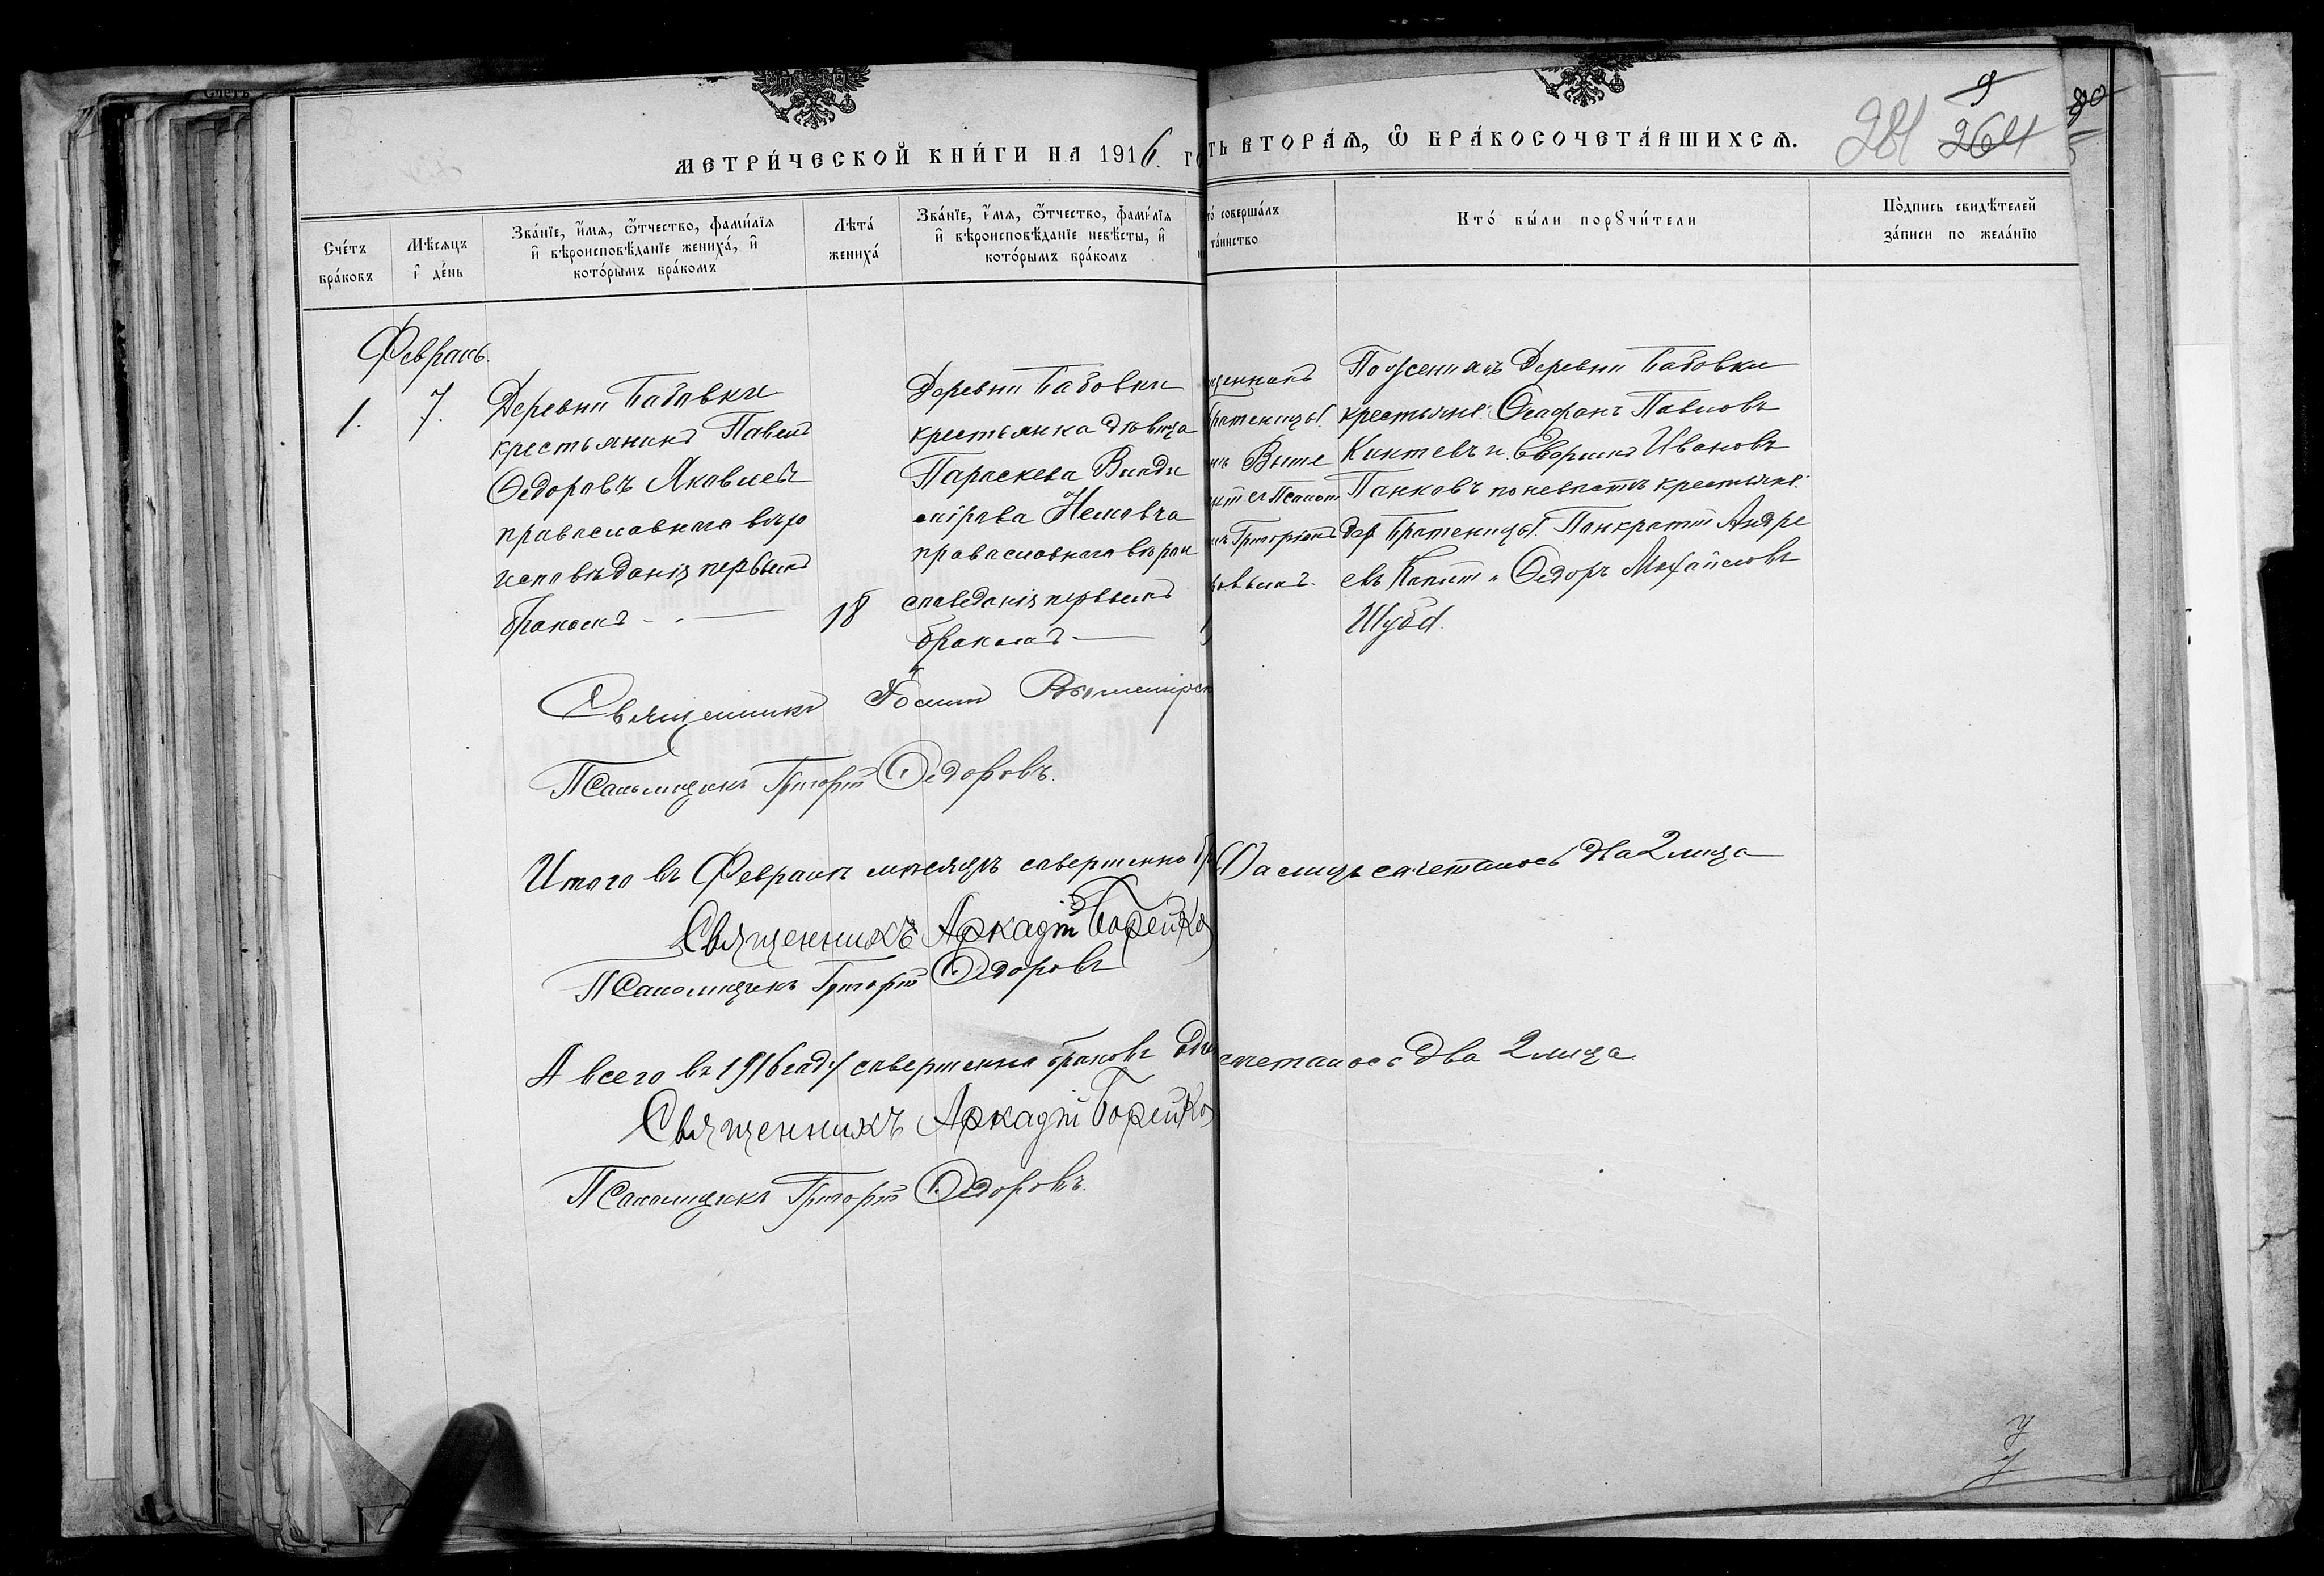 МЕТРИ́ЧЕСКОЙ КНИ́ГИ НА 1916. ГО
ТЬ ВТОРА́Ѧ, Ѽ БРА́КОСОЧЕТА́ВШИХСѦ.
9
281 264
80
Сче́тъ бра́ковъ
Мѣ́сяцъ и де́нь
Зва́нїе, и҆́мѧ, ѻ҆́тчество, фами́лїѧ и҆ вѣроисповѣ́данїе жениха́, и҆ кото́рымъ бра́комъ
Лѣта́ жениха́
Зва́нїе, и҆́мѧ, ѻ҆́тчество, фами́лїѧ и҆ вѣроисповѣ́данїе невѣ́сты, и҆ кото́рымъ бра́комъ
то́ соверша́лъ та́инство
Кто́ бы́ли порꙋчи́тели
По́дпись свидѣ́телей за́писи по жела́нїю
Февраль.
1. 7.
Деревни Бабовки
крестьянинъ Павелъ
Ѳедоровъ Яковлевъ
православнаго вѣро
исповѣданія первымъ
бракомъ
18
Деревни Бабовки
крестьянка дѣвица
Параскева Влади
мірова
православнаго вѣрои
споведанія первымъ
бракомъ
щенникъ
Братеницы
Григоріемъ
По женихѣ Деревни Бабовки
крестьяне: Ѳеофанъ Павловъ
Иванов
Панковъ по невѣстѣ крестьяне:
дер Братеницы. Панкратій Андре
евъ и Ѳедоръ Михайловъ
Шуба.
Священникъ
Псаломщикъ Григорій Ѳедоровъ.
Итого въ Февралѣ мѣсяцѣ совершенно бр
сочеталось два 2 лица
Священникъ Аркадій Борейко
Псаломщикъ Григорій Ѳедоровъ
А всего въ 1916 году совершенно браковъ
сочеталось два 2 лица.
Священникъ Аркадій Борейко
Псаломщикъ Григорій Ѳедоровъ.